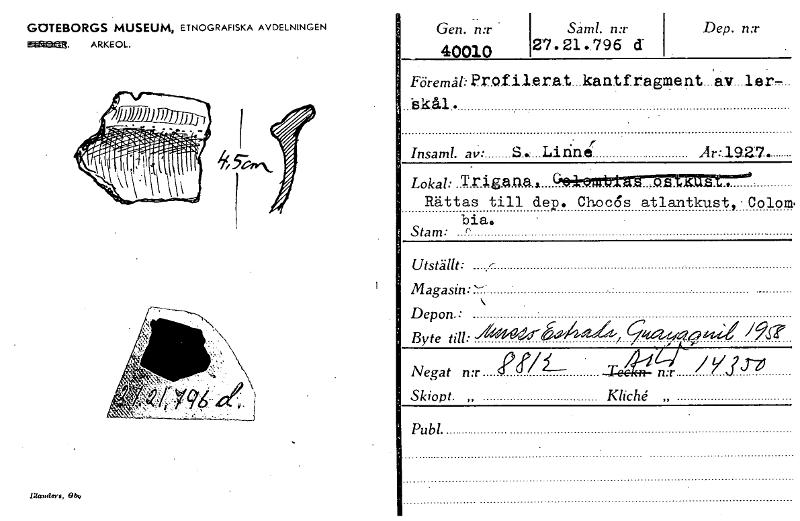 GÖTEBORGS MUSEUM, ETNOGRAFISKA AVDELNINGEN
ARKEOL.
4,5cm
27.21,796 d.
Gen. n:r Saml. n:r Dep. n:r
40010 27.21.796 d
Föremål: Profilerat kantfragment av ler-
skål.
Insaml. av: S. Linné År: 1927.
Lokal: Trigana, Colombias ostkust.
Rättas till dep. Chocós atlantkust, Colom-
bia.
Stam:
Utställt:
Magasin:
Depon.:
Byte till: Museo Estrada, Guayaquil 1958
Negat n:r 881 Teckn n:r 14350
Skiopt. „ Kliché „
Publ.